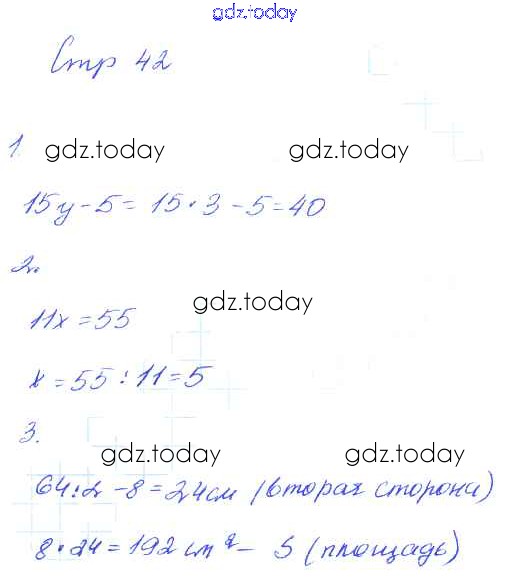 gdz.today
Стр 42
1.
gdz.today
15y - 5 = 15 · 3 - 5 = 40
2.
gdz.today
11x = 55
x = 55 : 11 = 5
3.
gdz.today gdz.today
64 : 2 - 8 = 24 см (вторая сторона)
8 · 24 = 192 см² - S (площадь)